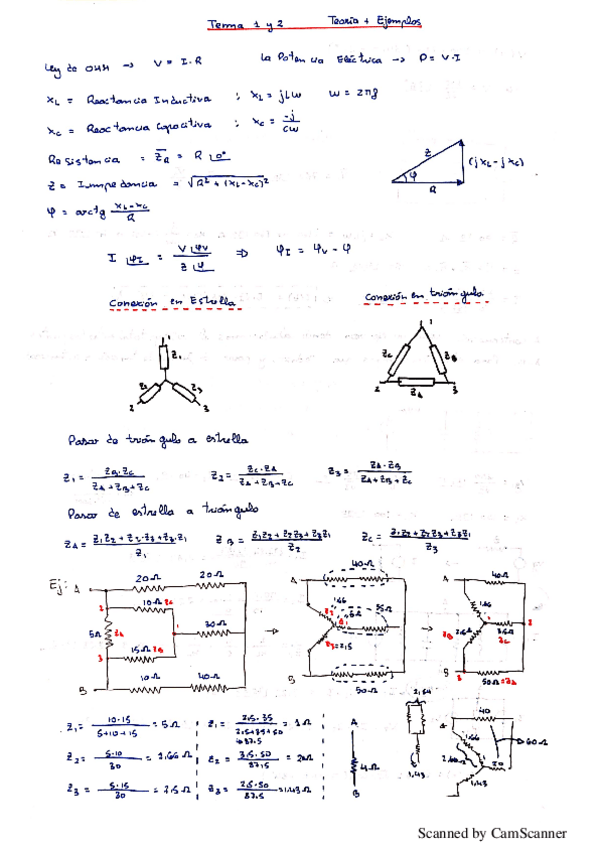 Tema 1 y 2 Teoría + Ejemplos
Ley de OHM → V = I·R La Potencia Eléctrica → P = V·I
XL = Reactancia Inductiva : XL = jLω ω = 2πf
XC = Reactancia Capacitiva : XC = -j/Cω
Resistencia = Z̄R = R∠0°
Z = Impedancia = √(R² + (XL-XC)²
φ = arctg (XL-XC)/R
Z (jXL-jXC) φ R
I∠φI = V∠φV / Z∠φ ⇒ φI = φV - φ
Conexión en Estrella Conexión en triángulo
1 Z1 Z2 Z3 2 3
1 ZC ZB 2 ZA 3
Pasar de triángulo a estrella
Z1 = ZB·ZC / ZA+ZB+ZC Z2 = ZC·ZA / ZA+ZB+ZC Z3 = ZA·ZB / ZA+ZB+ZC
Pasar de estrella a triángulo
ZA = Z1Z2+Z2·Z3+Z3·Z1 / Z1 ZB = Z1Z2+Z2Z3+Z3Z1 / Z2 ZC = Z1Z2+Z2Z3+Z3Z1 / Z3
Ej: A 20Ω 20Ω A 40Ω A 40Ω
2 10Ω ZC 1'66 1'66 2
5Ω ZA 1 30Ω 5Ω 35Ω 1
3 15Ω ZB Z3=2'5 ZC
B 10Ω 40Ω B 50Ω B 3 50Ω=ZA
Z1 = 10·15 / 5+10+15 = 5Ω Z1 = 2'5·35 / 2'5+35+50 = 1Ω
87'5
Z2 = 5·10 / 30 = 1'66Ω Z2 = 35·50 / 87'5 = 20Ω
Z3 = 5·15 / 30 = 2'5Ω Z3 = 2'5·50 / 87'5 = 1'43Ω
A 4Ω B
1'43
A 40 1'66 2'66 60Ω 20 1'43
Scanned by CamScanner